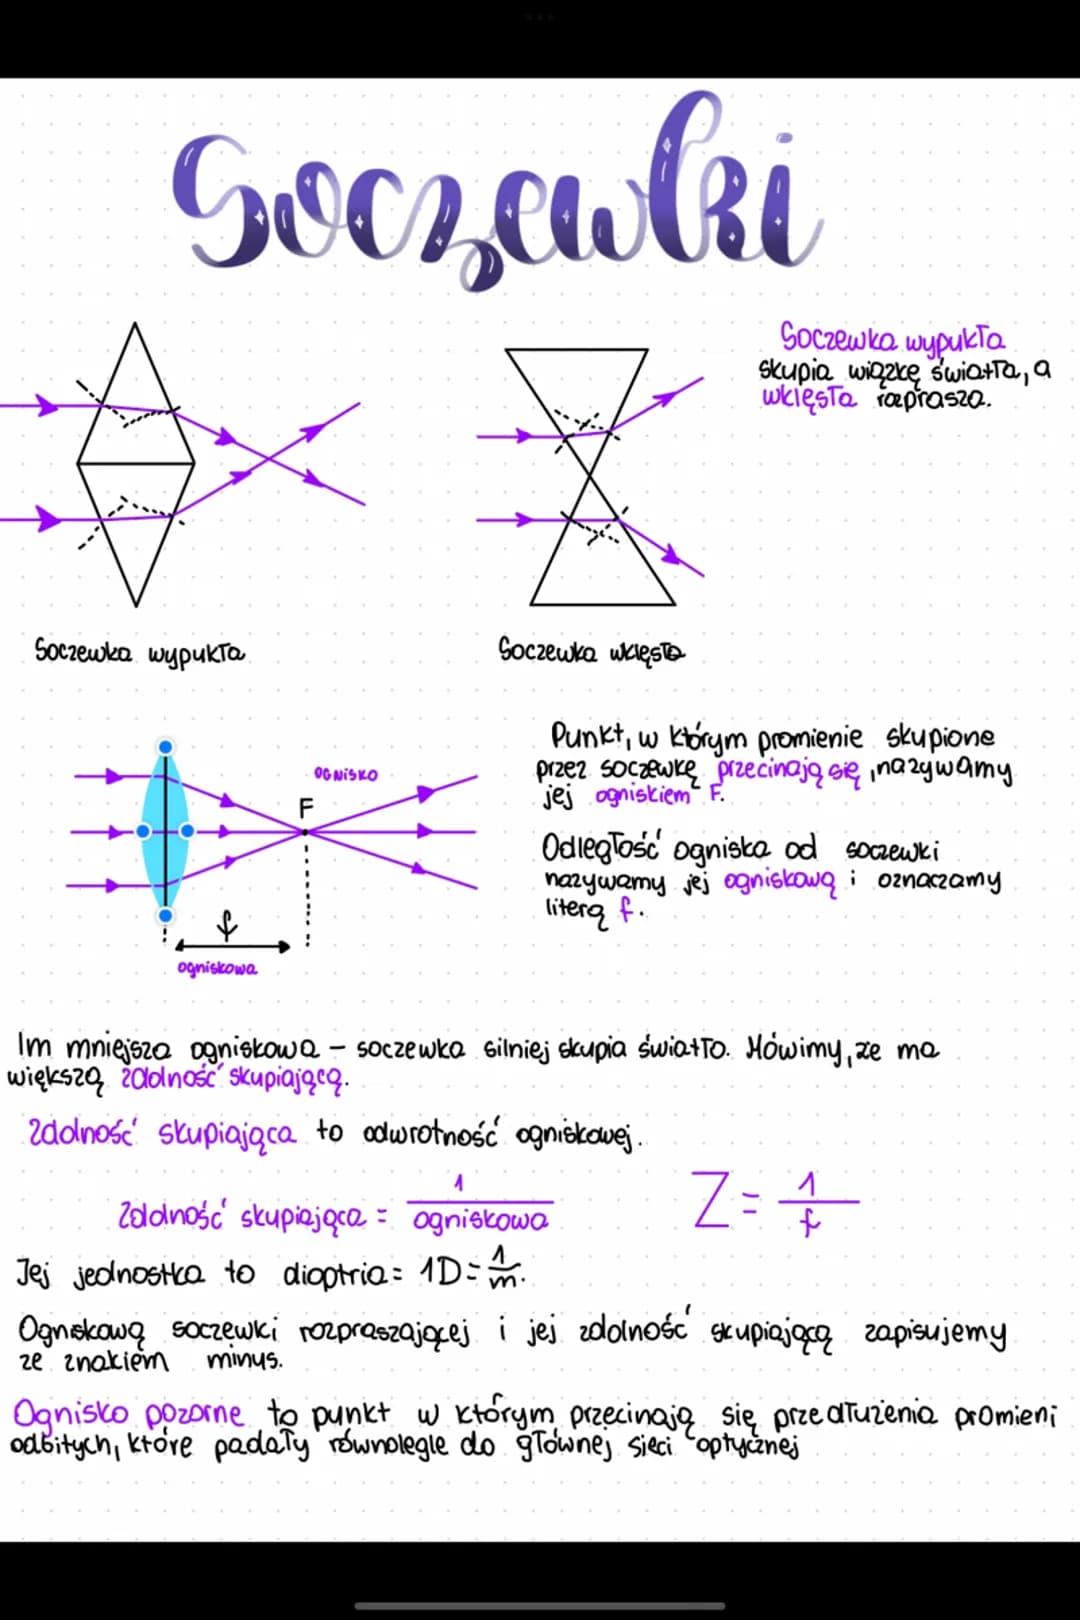 Soczewki
Soczewka wypukła
skupia wiązkę światła, a
wklęsła rozprasza.
Soczewka wypukła
Soczewka wklęsła
OGNISKO
F
f
ogniskowa
Punkt, w którym promienie skupione
przez soczewkę przecinają się, nazywamy
jej ogniskiem F.
Odległość ogniska od soczewki
nazywamy jej ogniskową i oznaczamy
literą f.
Im mniejsza ogniskowa – soczewka silniej skupia światło. Mówimy, że ma
większą zdolność skupiającą.
Zdolność skupiająca to odwrotność ogniskowej.
Zdolność skupiająca = 1/ogniskowa
Z = 1/f
Jej jednostka to dioptria = 1D = 1/m.
Ogniskową soczewki rozpraszającej i jej zdolność skupiającą zapisujemy
ze znakiem minus.
Ognisko pozorne to punkt w którym przecinają się przedłużenia promieni
odbitych, które padały równolegle do głównej sieci optycznej